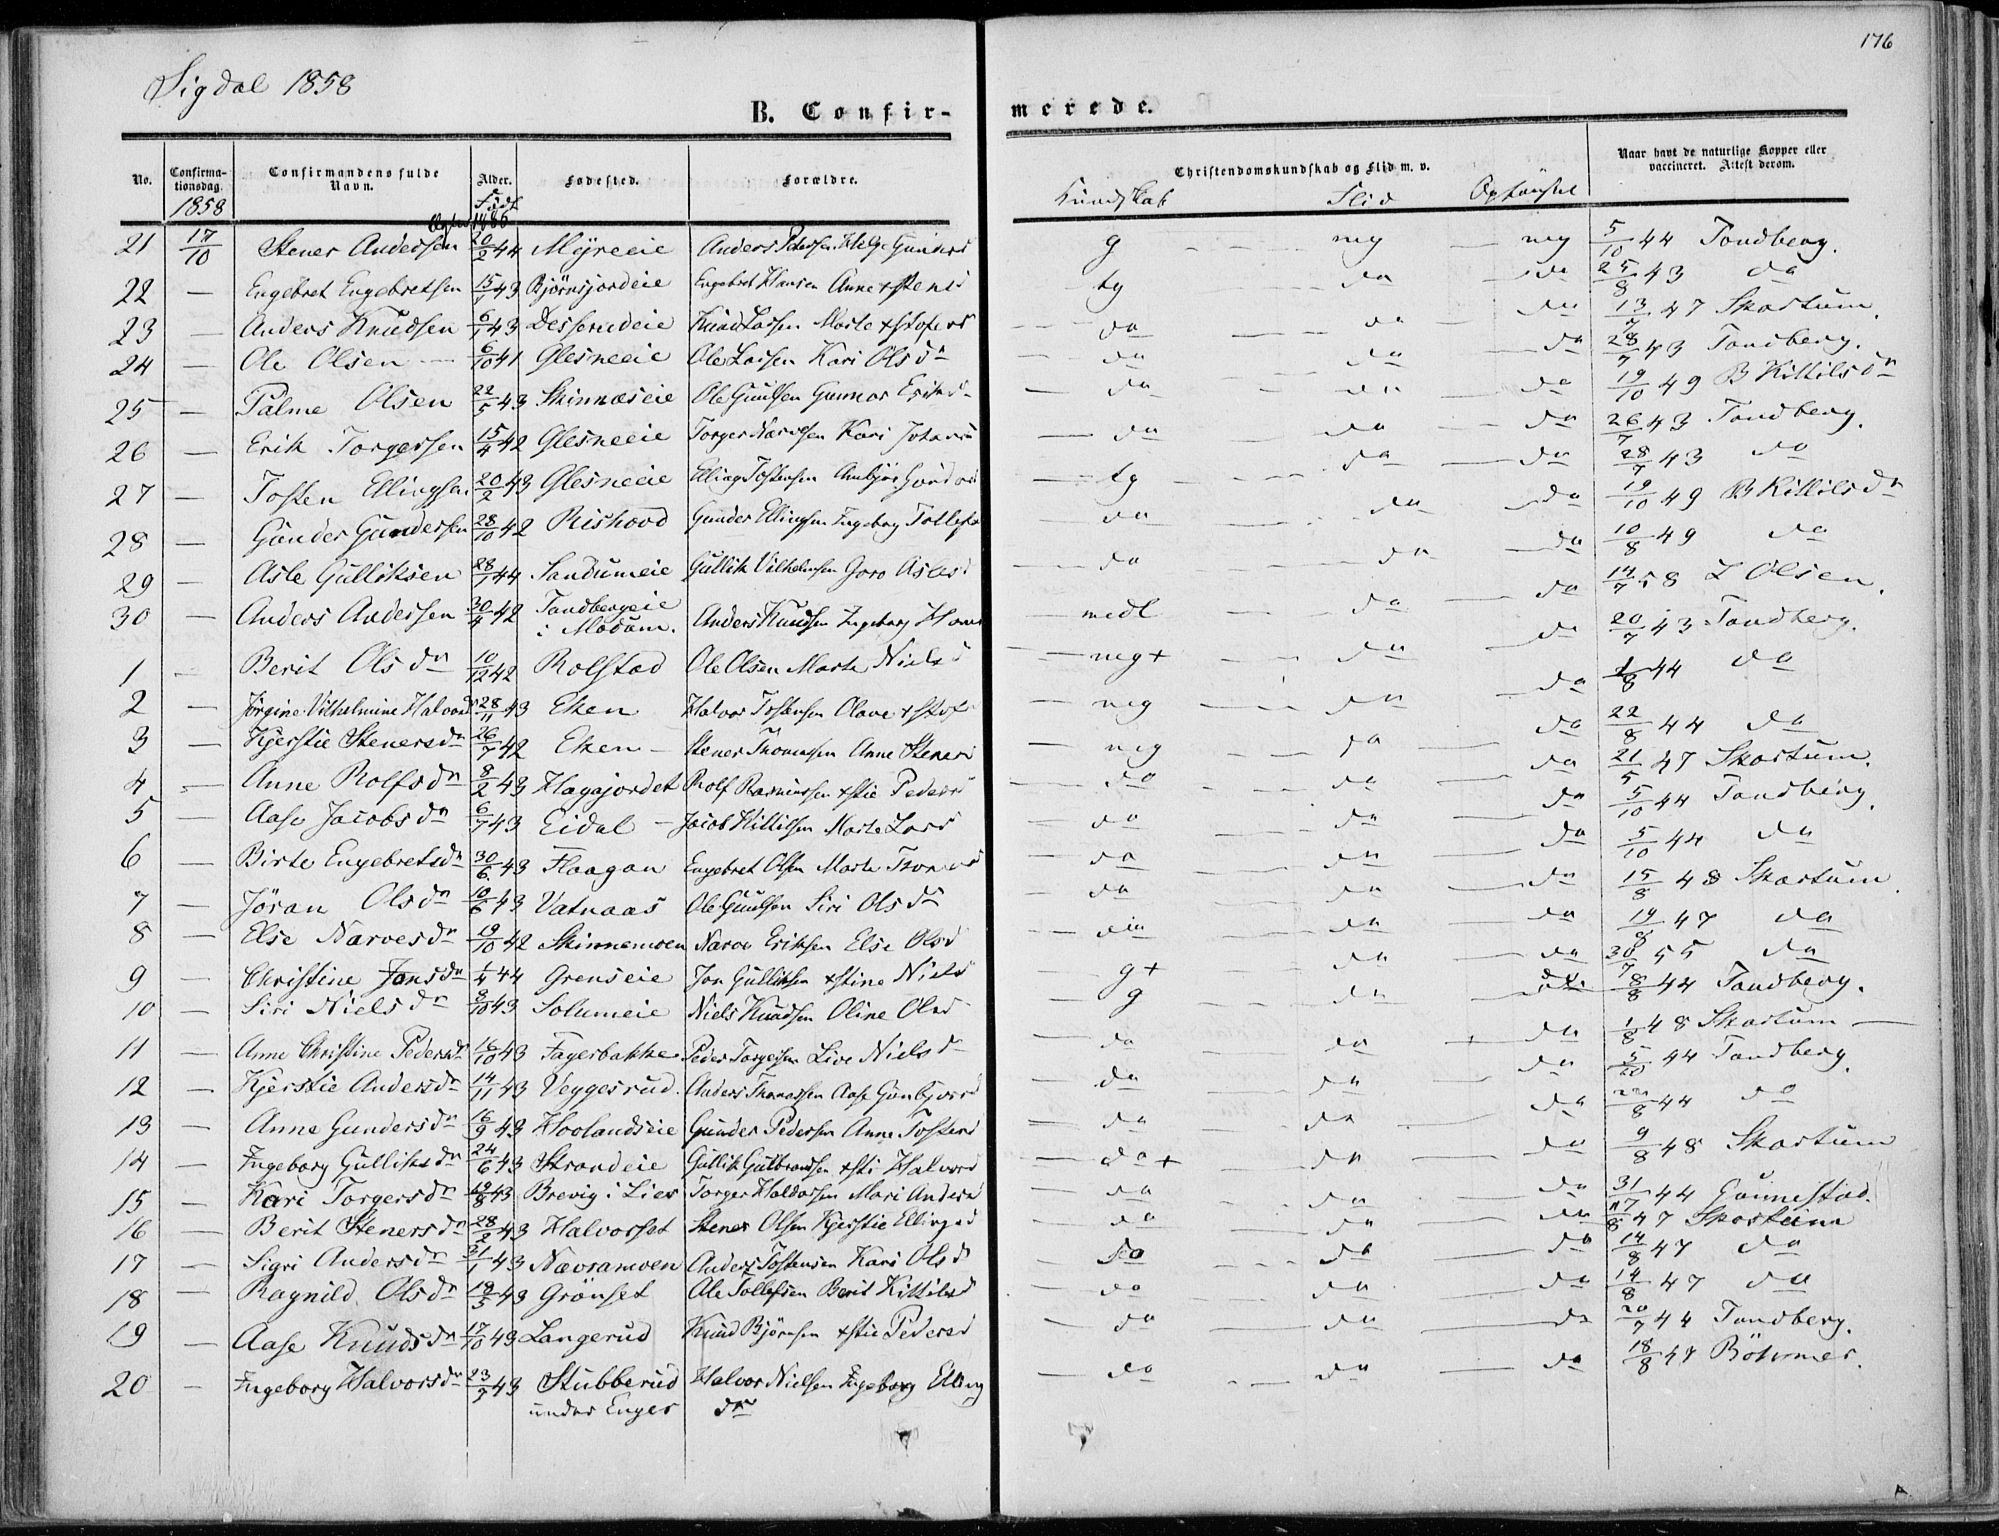 176
Sigdal 1858
B. Confirmerede.
No. Confirmationsdag. Confirmandens fulde Navn. Alder. Fødested. Forældre. Christendomskundskab og Flid m. v. Naar havt de naturlige Kopper eller vaccineret. Attest derom.
1858 Født Kundskab Flid Opførsel
21 17/10 Stener Andersen 20/2 44 Myreeie Anders Pedersen Helge Gunders g mg mg 5/10 44 Tandberg.
22 — Engebret Engebretsen 15/1 43 Bjørnsjordeie Engebret Hansen Anne tg do do 25/8 43 do
23 — Anders Knudsen 6/1 43 Desserudeie Knud Larsen Marte do do do 13/7 47 Skartum.
24 — Ole Olsen 6/10 41 Glesneeie Ole Larsen Kari Olsdr do do do 28/7 43 Tandberg.
25 — Palme Olsen 22/5 43 Skinnæseie Ole Guulsen Gunnor Eriksd do do do 19/10 49 B Kittilsdr
26 — Erik Torgersen 15/4 42 Glesneeie Torger Narvesen Kari do do do 26/7 43 Tandberg.
27 — Tosten Ellingsen 20/2 43 Glesneeie Elling Tostensen Ambjør tg do do 28/7 43 do
28 — Gunder Gundersen 28/10 42 Rishovd Gunder Ellingsen Ingeborg Tollefs do do do 19/10 49 B Kittilsdr
29 — Asle Gulliksen 28/1 44 Sandumeie Gullik Vilhelmsen Goro Aslesd do do do 10/8 49 do
30 — Anders Andersen 30/4 42 Tandbergeie i Modum. Anders Knudsen Ingeborg Hans medl do do 14/7 58 L Olsen.
1 — Berit Olsdr 10/12 42 Rolfstad Ole Olsen Marte Nielsd mg+ do do 20/7 43 Tandberg.
2 — Jørgine Vilhelmine Halvorsd 28/11 43 Eken Halvor Tostensen Olave mg do do 1/8 44 do
3 — Kjerstie Stenersdr 26/7 42 Eken Stener Thomassen Anne Stenersd mg do do 22/8 44 do
4 — Anne Rolfsdr 8/2 43 Hagajordet Rolf Rasmussen Pedersd do do do 21/5 47 Skartum.
5 — Aase Jacobsdr 6/7 43 Eidal Jacob Kittilsen Marte Larsd do do do 5/10 44 Tandberg.
6 — Birte Engebretsdr 30/6 43 Flaagan Engebret Olsen Marte do do do 5/10 44 do
7 — Jøran Olsdr 10/6 43 Vatnaas Ole Guulsen Siri Olsdr do do do 15/8 48 Skartum.
8 — Else Narvesdr 19/10 42 Skinnemoen Narve Eriksen Else Olsd do do do 19/8 47 do
9 — Christine Jonsdr 1/4 44 Grenseie Jon Gulliksen Nielsd g+ do do 30/7 55 do
10 — Siri Nielsdr 8/10 43 Solumeie Niels Knudsen Oline Olsd g do do 8/8 44 Tandberg.
11 — Anne Christine Pedersdr 16/10 43 Fagerbakke Peder Torgersen Live Nielsd do do do 1/8 48 Skartum
12 — Kjerstie Andersdr 14/11 43 Veggesrud Anders Thomassen Aase Gunbjørsd do do do 5/10 44 Tandberg.
13 — Anne Gundersdr 16/9 43 Hoolandseie Gunder Pedersen Anne Tostensd do do do /8 44 do
14 — Ingeborg Gulliksdr 24/6 43 Strandeie Gullik Gulbrandsen Halvorsd do+ do do 9/8 48 Skartum
15 — Kari Torgersdr 19/8 43 Brevig i Lier Torger Haldorsen Mari Andersd do do do 31/7 44 Gunnestad.
16 — Berit Stenersdr 28/2 43 Halvorset Stener Olsen Kjerstie Ellingsd do do do 17/8 47 Skartum
17 — Sigri Andersdr 31/1 43 Nævramoen Anders Tostensen Kari Olsd do do do 14/8 47 do
18 — Ragnild Olsdr 19/5 43 Grønset Ole Tollefsen Berit Kittilsd do do do 14/8 47 do
19 — Aase Knudsdr 17/10 43 Langerud Knud Bjørnsen Pedersd do do do 20/7 44 Tandberg.
20 — Ingeborg Halvorsdr 23/7 43 Stubberud under Enger Halvor Nielsen Ingeborg Ellingdr do do do 18/8 47 Böhmer.